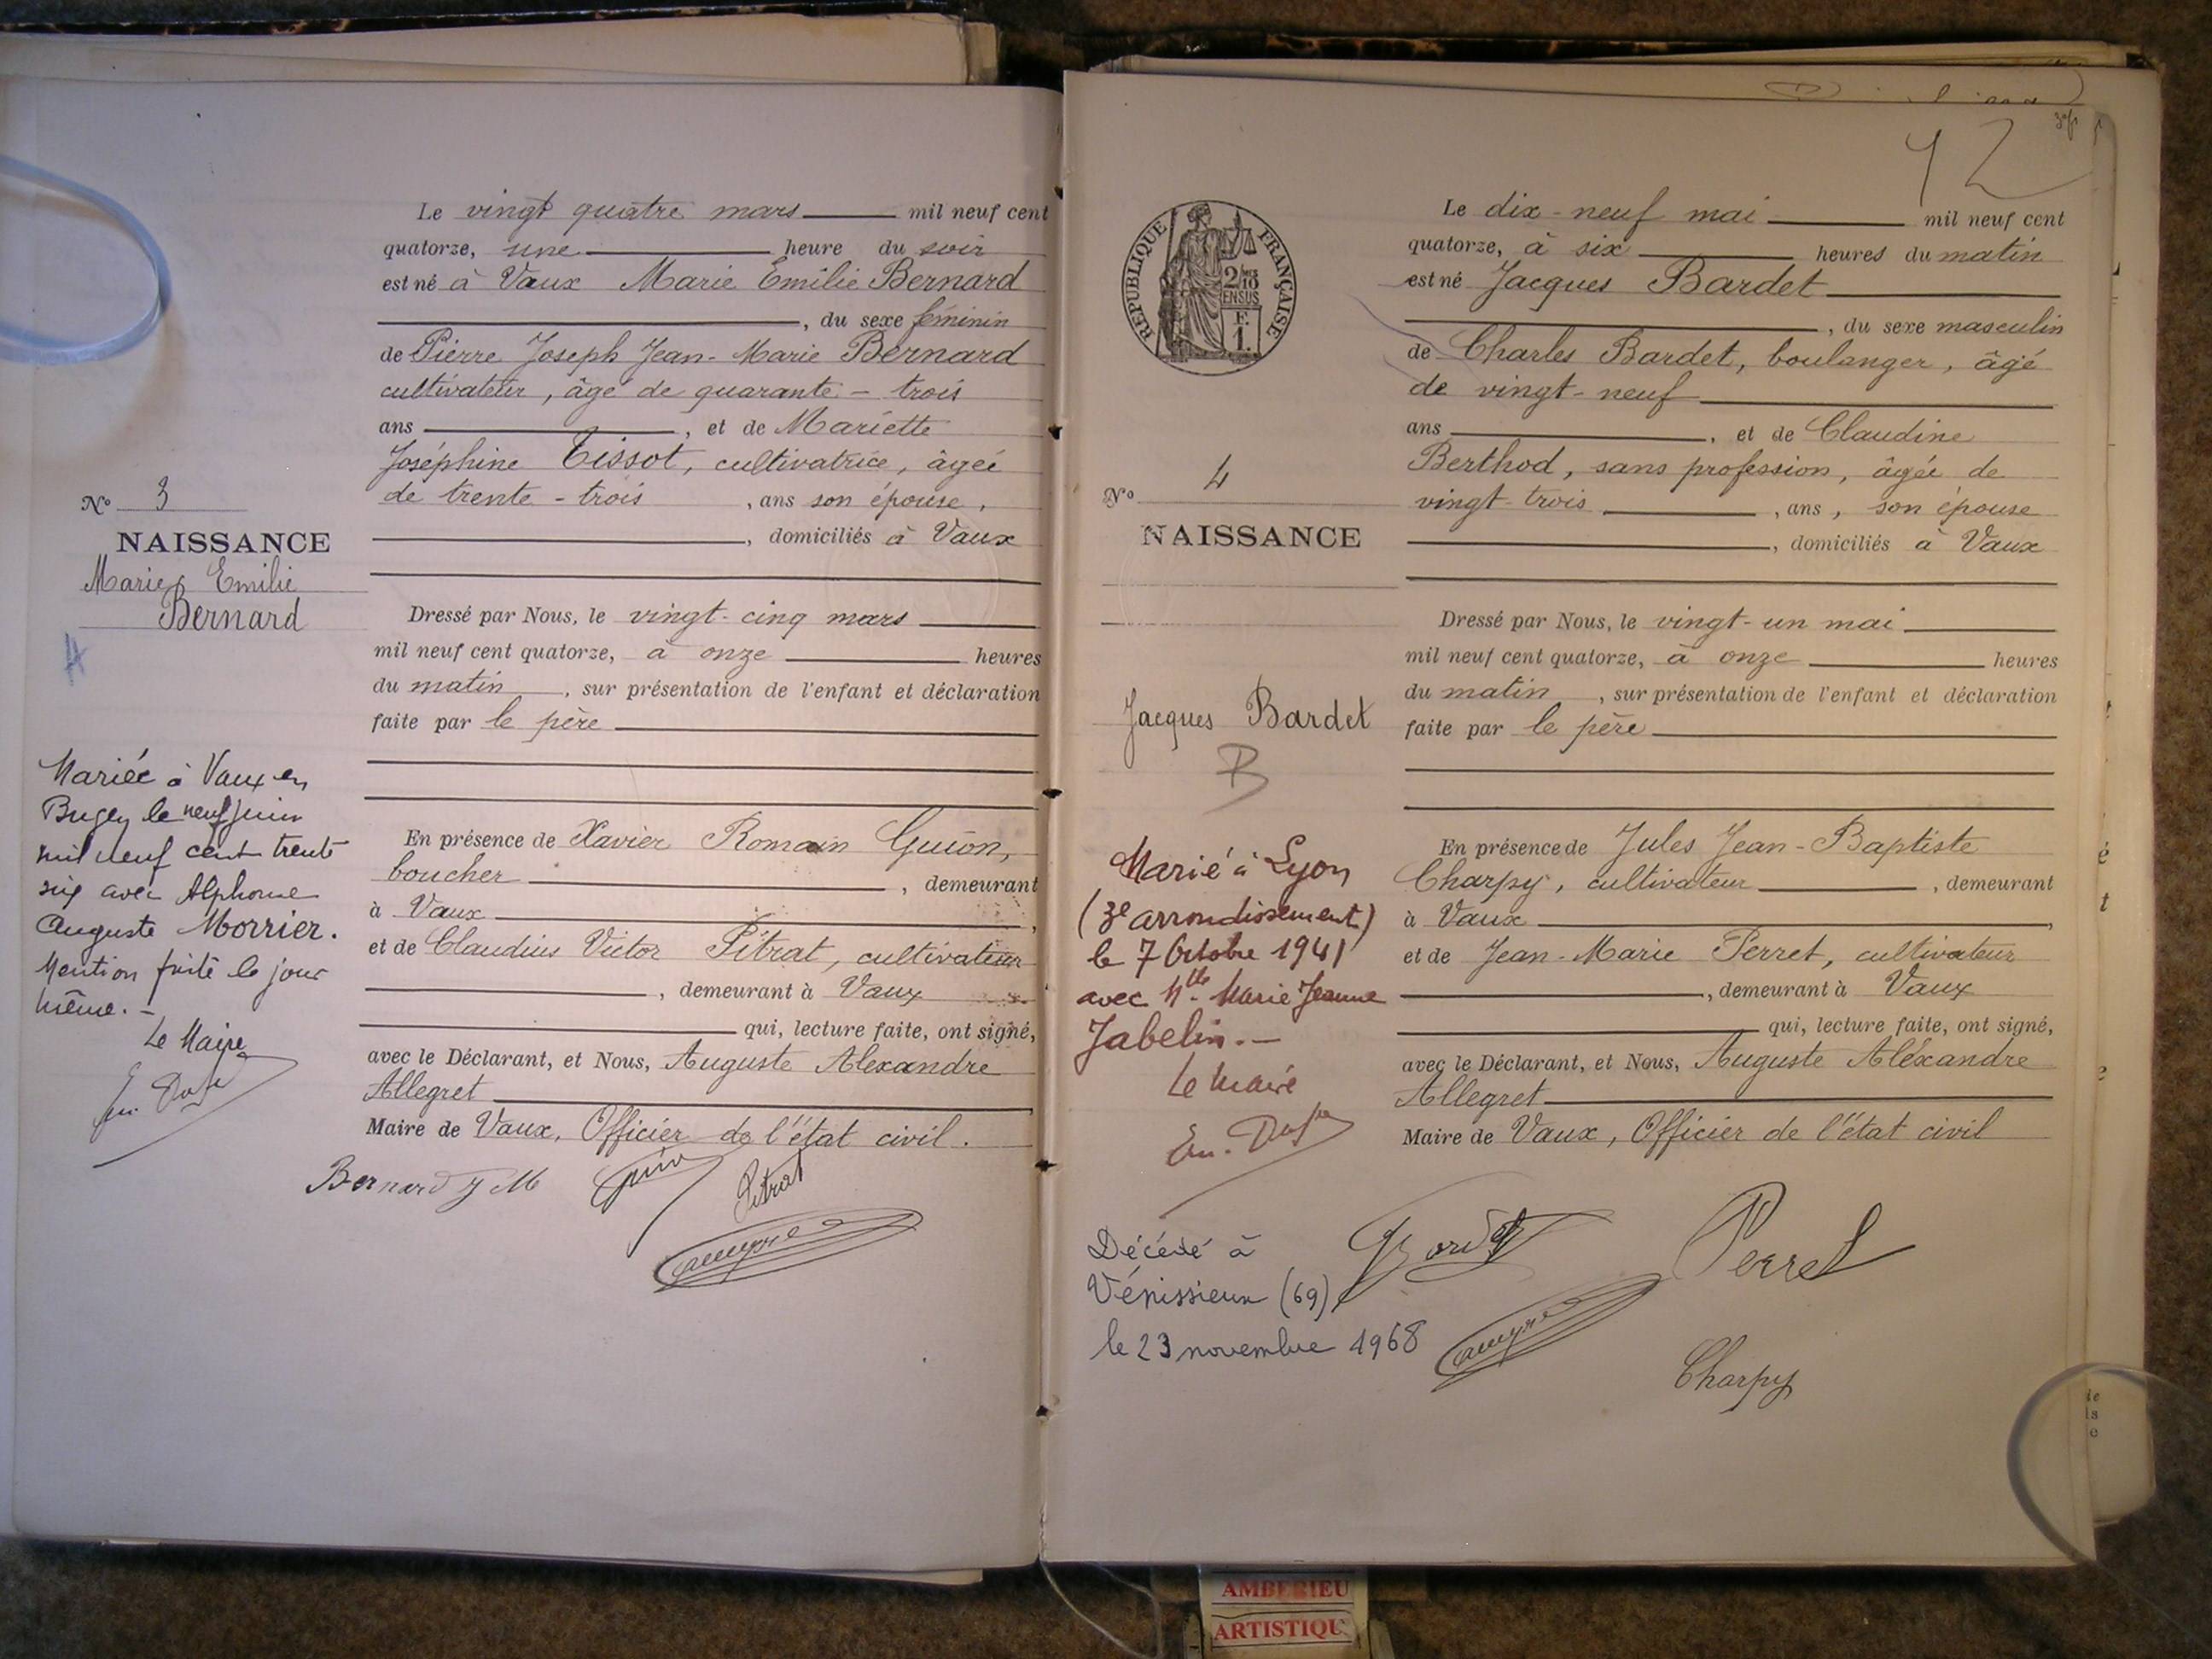 Le vingt quatre mars mil neuf cent
quatorze, une heure du soir
est né à Vaux Marie Emilie Bernard
, du sexe féminin
de Pierre Joseph Jean-Marie Bernard
cultivateur, âgé de quarante-trois
ans , et de Mariette
Joséphine Tissot, cultivatrice, âgée
de trente-trois , ans son épouse,
, domiciliés à Vaux
N° 3
NAISSANCE
Marie Emilie
Bernard
Dressé par Nous, le vingt-cinq mars
mil neuf cent quatorze, à onze heures
du matin , sur présentation de l'enfant et déclaration
faite par le père
Mariée à Vaux en
Bugey le neuf juin
mil neuf cent trente
six avec Alphonse
Auguste Morrier.
Mention faite le jour
même. -
Le Maire
En présence de Xavier Romain Guion,
boucher , demeurant
à Vaux ,
et de Claudius Victor Pitrat, cultivateur
, demeurant à Vaux
qui, lecture faite, ont signé,
avec le Déclarant, et Nous, Auguste Alexandre
Allegret
Maire de Vaux, Officier de l'état civil.
Bernard J M
Pitrat
42
RÉPUBLIQUE FRANÇAISE
2/10
EN SUS
F.
1.
Le dix-neuf mai mil neuf cent
quatorze, à six heures du matin
est né Jacques Bardet
, du sexe masculin
de Charles Bardet, boulanger, âgé
de vingt-neuf
ans , et de Claudine
Berthod, sans profession, âgée de
vingt-trois , ans, son épouse
, domiciliés à Vaux
N° 4
NAISSANCE
Jacques Bardet
B
Dressé par Nous, le vingt-un mai
mil neuf cent quatorze, à onze heures
du matin , sur présentation de l'enfant et déclaration
faite par le père
Marié à Lyon
(3e arrondissement)
le 7 Octobre 1941
avec Mlle Marie Jeanne
Jabelin. -
Le Maire
En présence de Jules Jean-Baptiste
Charpy, cultivateur , demeurant
à Vaux ,
et de Jean-Marie Perret, cultivateur
, demeurant à Vaux
qui, lecture faite, ont signé,
avec le Déclarant, et Nous, Auguste Aléxandre
Allegret
Maire de Vaux, Officier de l'état civil
Décédé à
Vénissieux (69)
le 23 novembre 1968
Bardet
Perret
Charpy
AMBERIEU
ARTISTIQU